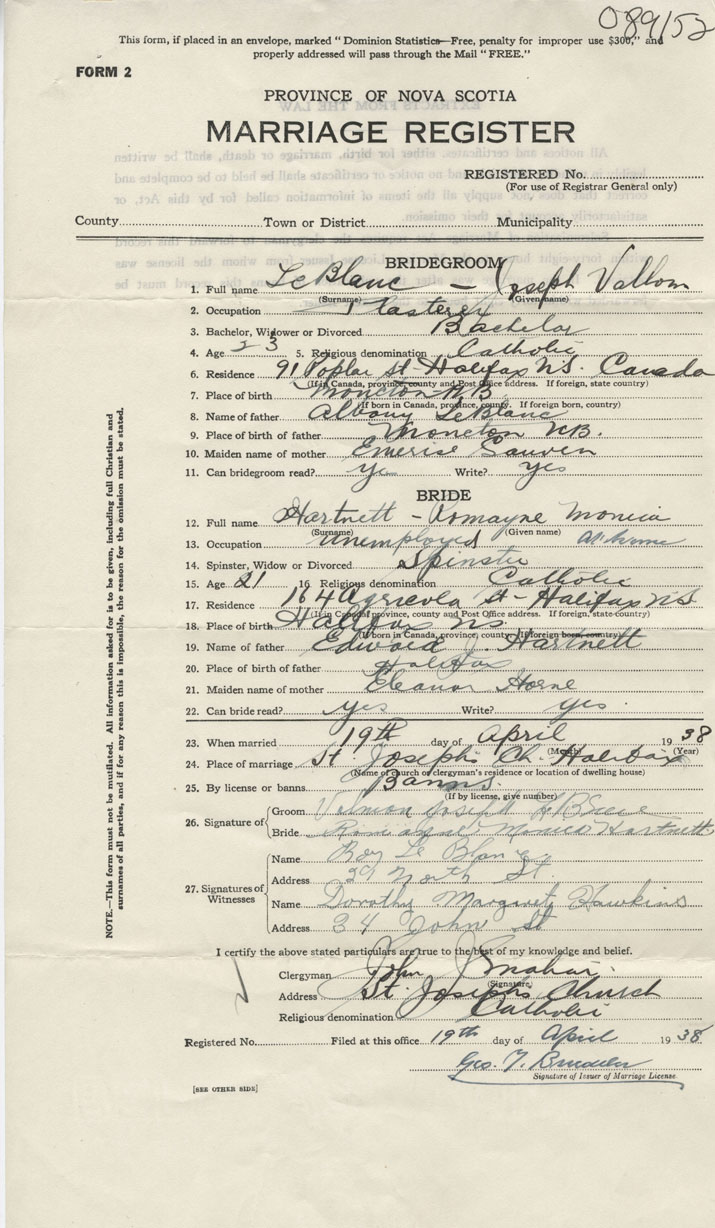 089152
This form, if placed in an envelope, marked "Dominion Statistics—Free, penalty for improper use $300," and
properly addressed will pass through the Mail "FREE."
FORM 2
PROVINCE OF NOVA SCOTIA
MARRIAGE REGISTER
REGISTERED No.
(For use of Registrar General only)
County Town or District Municipality
BRIDEGROOM
1. Full name LeBlanc - Joseph
(Surname) (Given name)
2. Occupation Plasterer
3. Bachelor, Widower or Divorced Bachelor
4. Age 23 5. Religious denomination Catholic
6. Residence 91 Poplar St Halifax N.S. Canada
(If in Canada, province, county and Post Office address. If foreign, state country)
7. Place of birth Moncton N.B.
(If born in Canada, province, county. If foreign born, country)
8. Name of father LeBlanc
9. Place of birth of father Moncton N.B.
10. Maiden name of mother
11. Can bridegroom read? yes Write? yes
BRIDE
12. Full name Hartnett - Romayne Monica
(Surname) (Given name)
13. Occupation Unemployed At home
14. Spinster, Widow or Divorced Spinster
15. Age 21 16. Religious denomination Catholic
17. Residence 164 Agricola St - Halifax NS
(If in Canada, province, county and Post Office address. If foreign, state country)
18. Place of birth Halifax NS.
(If born in Canada, province, county. If foreign born, country)
19. Name of father Edward J. Hartnett
20. Place of birth of father Halifax
21. Maiden name of mother Eleanor Horne
22. Can bride read? yes Write? yes.
23. When married 19th day of April 1938
(Month) (Year)
24. Place of marriage St. Josephs Ch. Halifax
(Name of church or clergyman's residence or location of dwelling house)
25. By license or banns Banns.
(If by license, give number)
26. Signature of
Groom Joseph
Bride Monica Hartnett
27. Signatures of Witnesses
Name Roy Le Blanc
Address North St.
Name Dorothy Margaret Hawkins
Address 34 John St
I certify the above stated particulars are true to the best of my knowledge and belief.
Clergyman John
(Signature)
Address St. Josephs Church
Religious denomination Catholic
Registered No. Filed at this office 19th day of April 1938
Geo.
Signature of Issuer of Marriage License
[SEE OTHER SIDE]
NOTE.—This form must not be mutilated. All information asked for is to be given, including full Christian and
surnames of all parties, and if for any reason this is impossible, the reason for the omission must be stated.